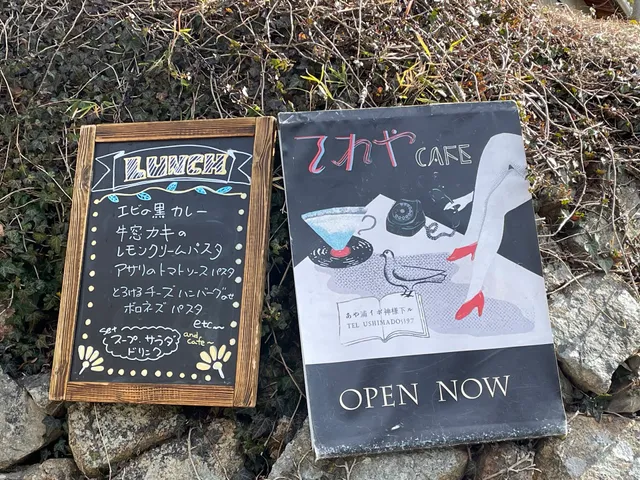 LUNCH
エビの黒カレー
牛窓カキの
レモンクリームパスタ
アサリのトマトソースパスタ
とろけるチーズハンバーグのせ
ボロネーズパスタ
etc〜
set
スープ、サラダ
ドリンク
and
cafe〜
てれやCAFE
TEL USHIMADO5197
OPEN NOW